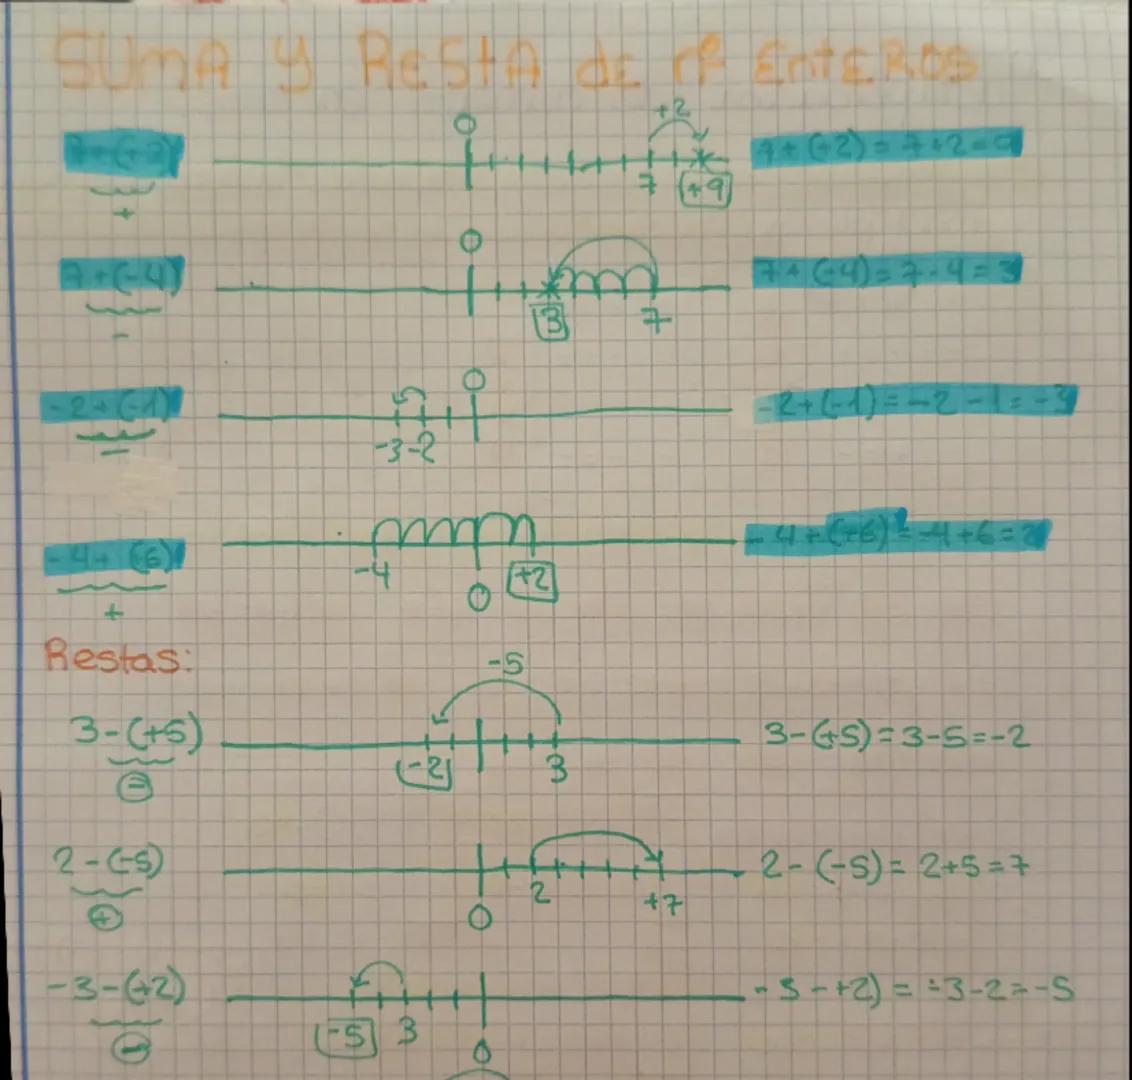 SUMA Y RESTA DE nº ENTEROS
7+(+2) 0 +2 7 +9 7+(+2)=7+2=9
+
7+(-4) 0 3 7 7+(-4)=7-4=3
-
-2+(-1) 0 -3 -2 -2+(-1)=-2-1=-3
-
-4+(6) -4 0 +2 -4+(+6)=-4+6=2
+
Restas:
3-(+5) -5 -2 3 3-(+5)=3-5=-2
-
2-(-5) 0 2 +7 2-(-5)=2+5=7
+
-3-(+2) -5 3 0 -3-+2)=-3-2=-5
-